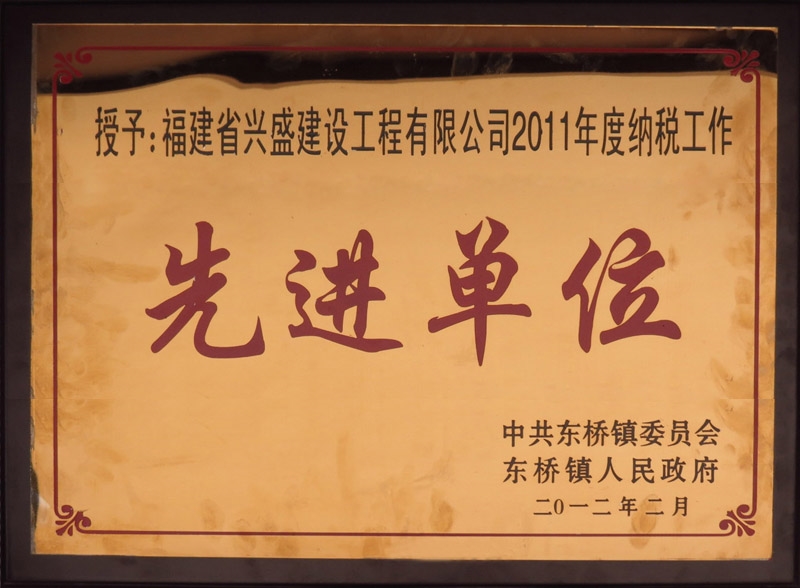 授予:福建省兴盛建设工程有限公司2011年度纳税工作
先进单位
中共东桥镇委员会
东桥镇人民政府
二0一二年二月